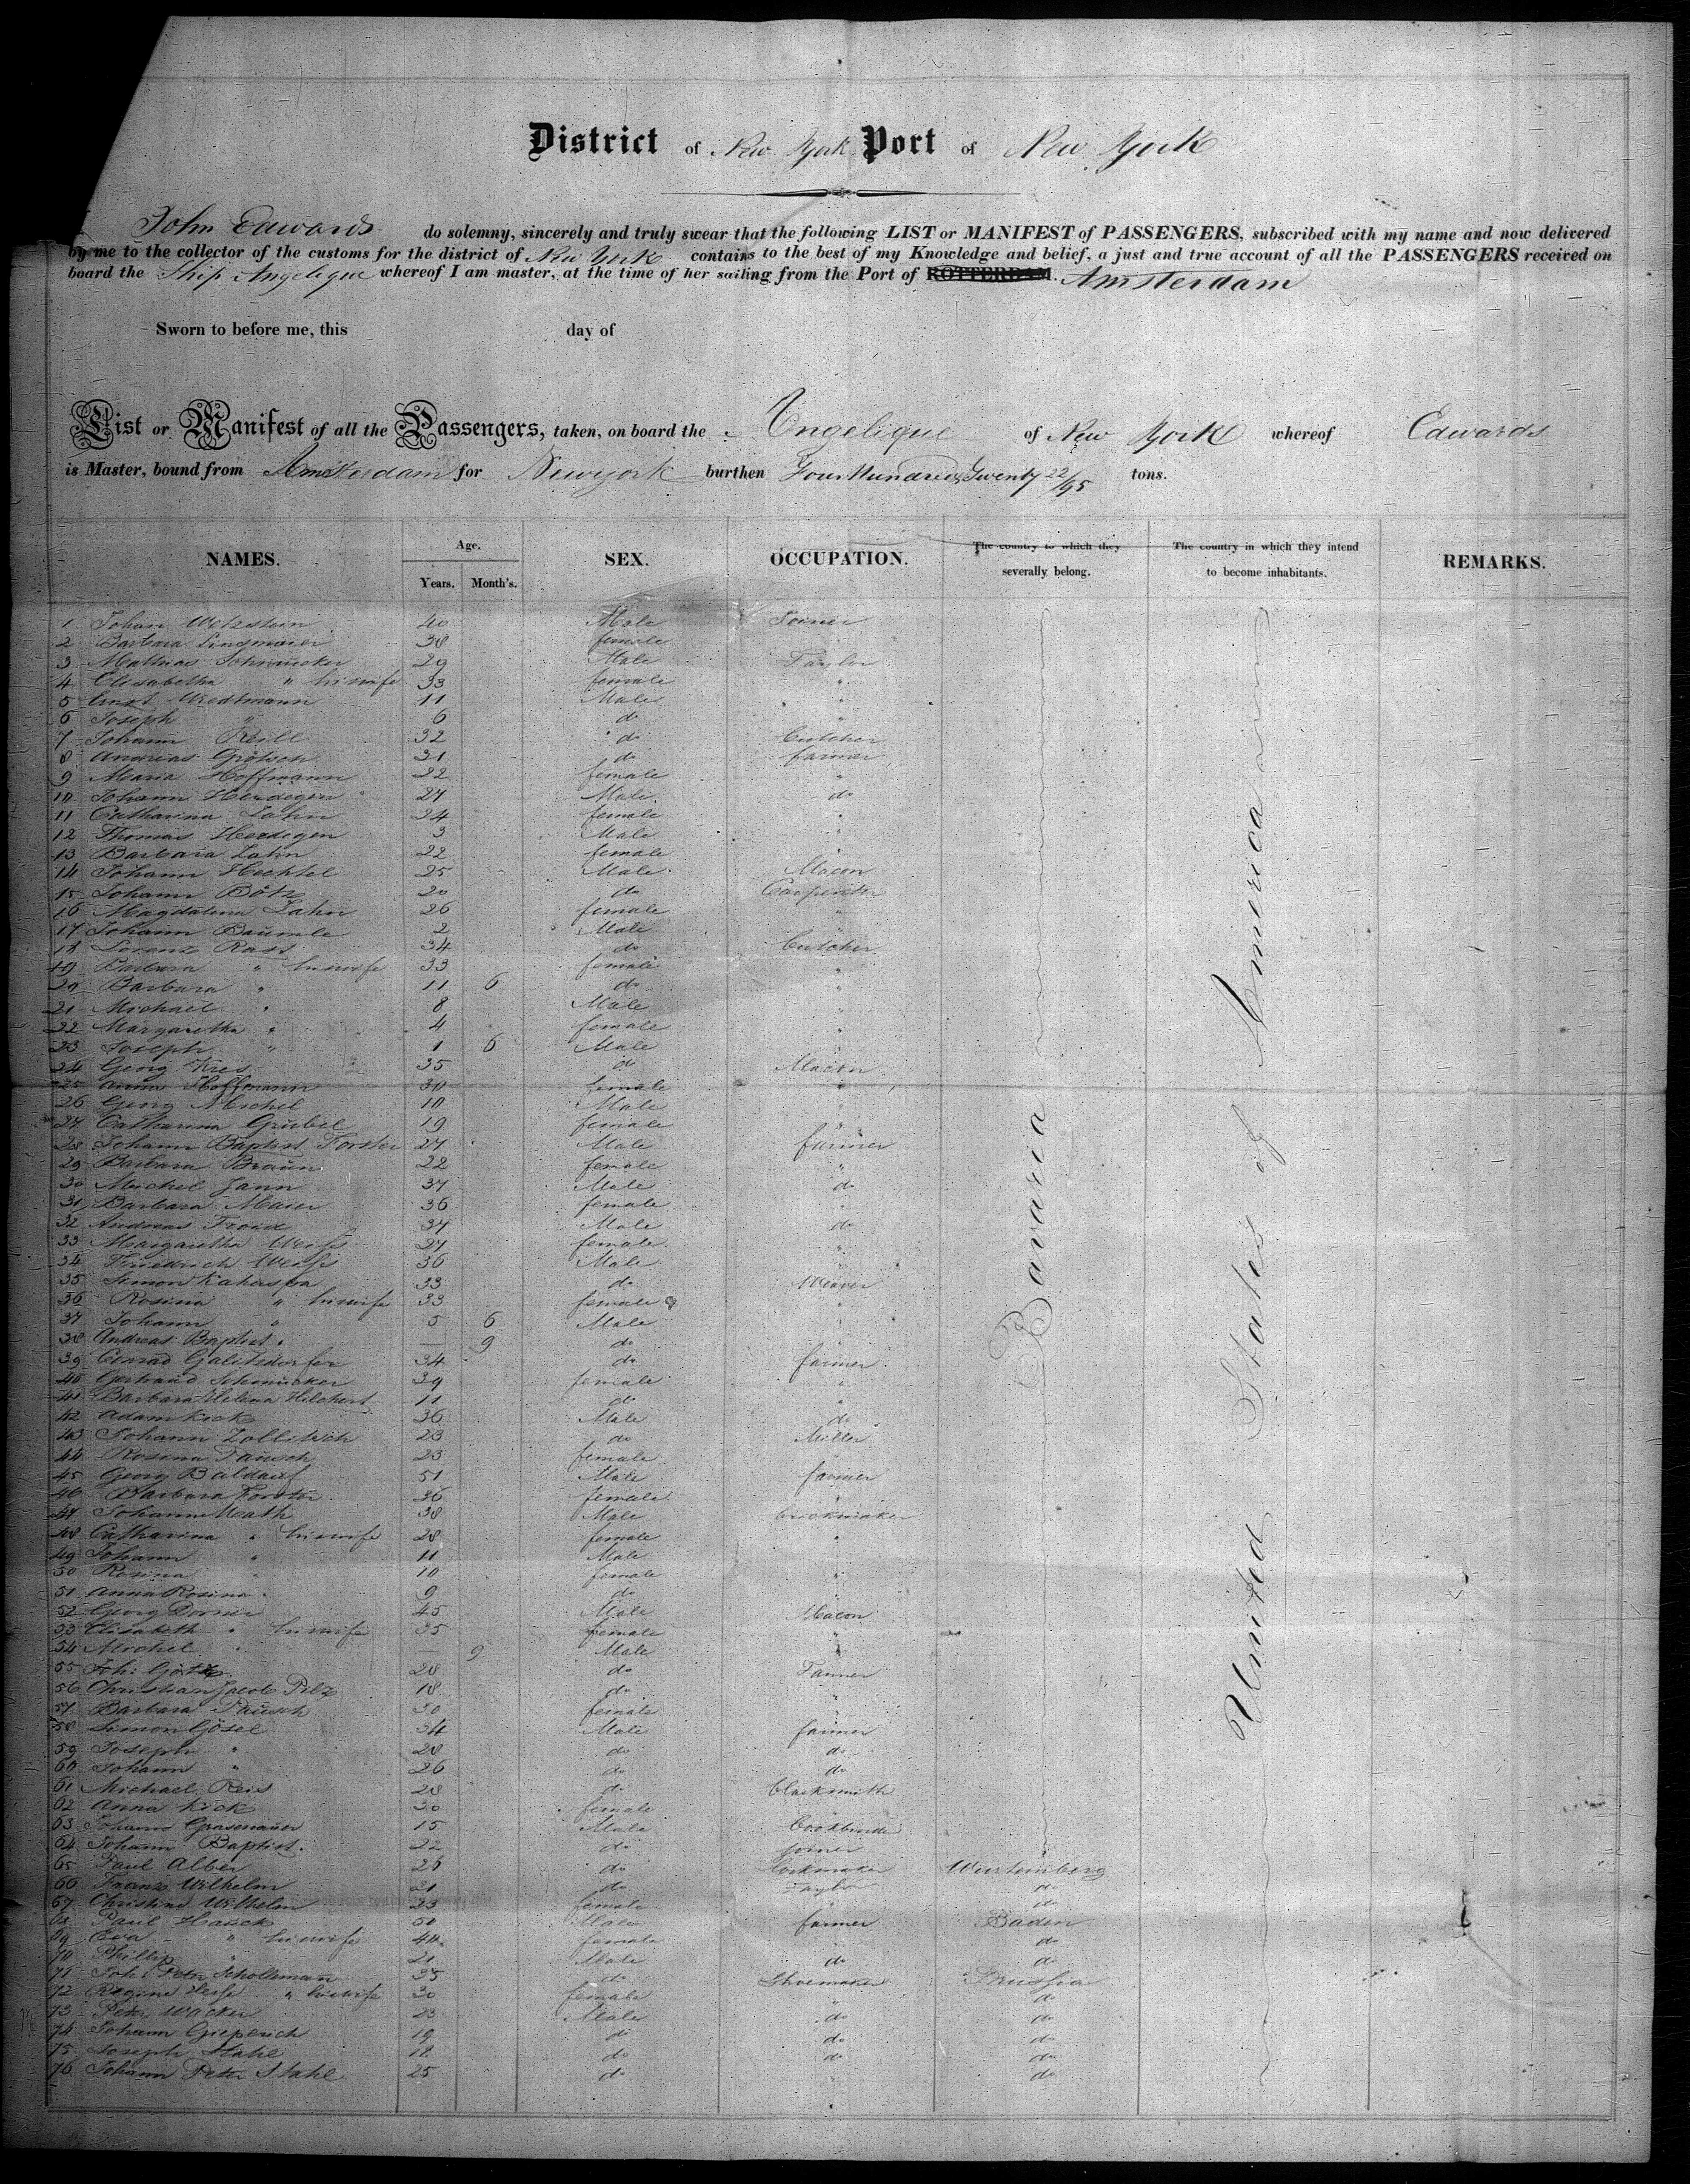 District of New York Port of New York
John Edwards do solemny, sincerely and truly swear that the following LIST or MANIFEST of PASSENGERS, subscribed with my name and now delivered
by me to the collector of the customs for the district of New York contains to the best of my Knowledge and belief, a just and true account of all the PASSENGERS received on
board the Ship Angelique whereof I am master, at the time of her sailing from the Port of ROTTERDAM. Amsterdam
Sworn to before me, this day of
List or Manifest of all the Passengers, taken, on board the Angelique of New York whereof Edwards
is Master, bound from Amsterdam for Newyork burthen Four Hundred Twenty 22/95 tons.
NAMES. Age. Years. Month's. SEX. OCCUPATION. The country to which they severally belong. The country in which they intend to become inhabitants. REMARKS.
Bavaria
United States of America
1 Johan Wetzstein 40 Male Joiner
2 Barbara Lindmaier 38 female "
3 Mathias Schmucker 29 Male Taylor
4 Elisabetha " his wife 33 female "
5 Ernst Wiedtmann 11 Male "
6 Joseph " 6 do "
7 Johann Reill 32 do butcher
8 Andreas Grötsch 31 do farmer
9 Maria Hoffmann 22 female "
10 Johann Herdegen 27 Male do
11 Catharina Zahn 24 female "
12 Thomas Herdegen 3 Male "
13 Barbara Zahn 22 female "
14 Johann Hechtel 25 Male Macon
15 Johann Götz 20 do Carpenter
16 Magdalena Zahn 26 female "
17 Johann Bäumle 2 Male "
18 Lorenz Rass 34 do butcher
19 Barbara " his wife 33 female "
20 Barbara " 11 6 do "
21 Michael " 8 Male "
22 Margaretha " 4 female "
23 Joseph " 1 6 Male "
24 Georg Kres 35 do Macon
25 Anna Hoffmann 30 female "
26 Georg Michel 10 Male "
27 Catharina Grübel 19 female "
28 Johann Baptist Forster 27 Male farmer
29 Barbara Braun 22 female "
30 Michel Jann 37 Male do
31 Barbara Maier 36 female "
32 Andreas 37 Male do
33 Margaretha Weiss 27 female "
34 Friedrich Weiss 36 Male "
35 Simon 33 do Weaver
36 Rosina " his wife 33 female "
37 Johann " 5 6 Male "
38 Andreas Baptist " — 9 do "
39 Conrad Galitzdorfer 34 do farmer
40 Gertraud Schmucker 39 female "
41 Barbara Helena Hilchert 11 do "
42 Adam Kick 36 Male do
43 Johann Zollitsch 23 do Miller
44 Rosina Pausch 23 female "
45 Georg Baldauf 51 Male farmer
46 Barbara Forster 36 female "
47 Johann Math 38 Male brickmaker
48 Catharina " his wife 28 female "
49 Johann " 11 Male "
50 Rosina " 10 female "
51 Anna Rosina " 9 do "
52 Georg Dorner 45 Male Macon
53 Elisabeth " his wife 35 female "
54 Michel " 9 Male "
55 Joh: Götz 28 do Tanner
56 Christian Jacob Pilz 18 do "
57 Barbara Pausch 30 female "
58 Simon Gösel 34 Male farmer
59 Joseph " 28 do do
60 Johann " 26 do do
61 Michael Reis 28 do blacksmith
62 Anna Kick 30 female "
63 Johann Grasenauer 15 Male bookbinder
64 Johann Baptist 22 do Joiner
65 Paul Alber 26 do Wurtemberg
66 Franz Wilhelm 21 do Taylor do
67 Christina Wilhelm 23 female " do
68 Paul Hauck 50 Male farmer Baden
69 Eva " his wife female do
70 Phillip " 21 Male do do
71 Joh: Peter Scholtman 35 do Shoemaker Prussia
72 Regina " his wife 30 female " do
73 Peter Wacker 23 Male do do
74 Johann Gieperich 19 do do do
75 Joseph Stahl 18 do do do
76 Johann Peter Stahl 25 do " do